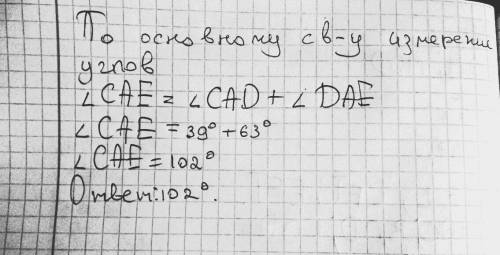 По основному св-у измерении
углов
∠CAE = ∠CAD + ∠DAE
∠CAE = 39° + 63°
∠CAE = 102°
Ответ: 102°.